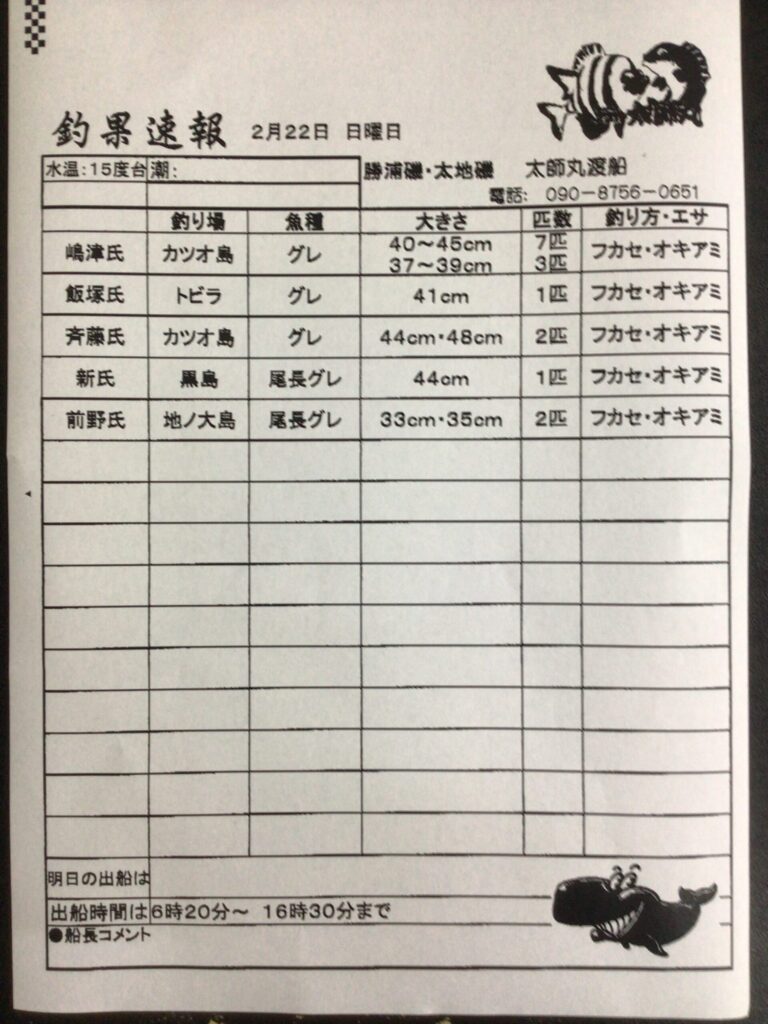 釣果速報 2月22日 日曜日
水温:15度台 潮: 勝浦磯・太地磯 太師丸渡船
電話: 090-8756-0651
釣り場 魚種 大きさ 匹数 釣り方・エサ
嶋津氏 カツオ島 グレ 40〜45cm 7匹 フカセ・オキアミ
37〜39cm 3匹
飯塚氏 トビラ グレ 41cm 1匹 フカセ・オキアミ
斉藤氏 カツオ島 グレ 44cm・48cm 2匹 フカセ・オキアミ
新氏 黒島 尾長グレ 44cm 1匹 フカセ・オキアミ
前野氏 地ノ大島 尾長グレ 33cm・35cm 2匹 フカセ・オキアミ
明日の出船は
出船時間は 6時20分〜 16時30分まで
●船長コメント